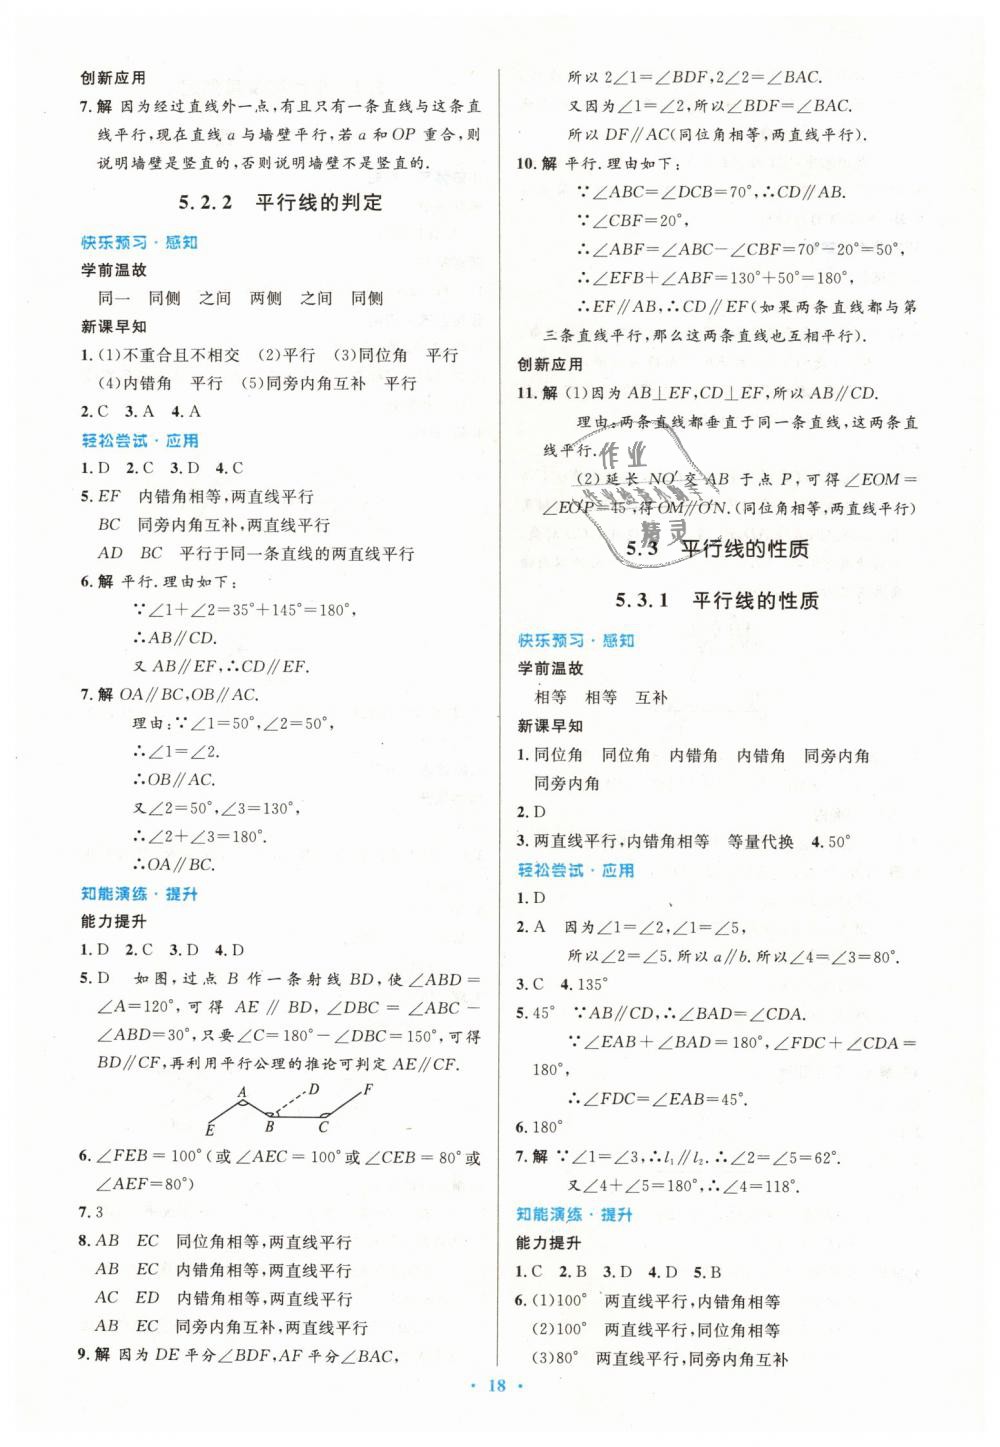 创新应用
7.解 因为经过直线外一点,有且只有一条直线与这条直
线平行,现在直线 a 与墙壁平行,若 a 和OP 重合,则
说明墙壁是竖直的,否则说明墙壁不是竖直的.
5.2.2 平行线的判定
快乐预习·感知
学前温故
同一 同侧 之间 两侧 之间 同侧
新课早知
1.(1)不重合且不相交 (2)平行 (3)同位角 平行
(4)内错角 平行 (5)同旁内角互补 平行
2.C 3.A 4.A
轻松尝试·应用
1.D 2.C 3.D 4.C
5.EF 内错角相等,两直线平行
BC 同旁内角互补,两直线平行
AD BC 平行于同一条直线的两直线平行
6.解 平行.理由如下:
∵∠1+∠2=35°+145°=180°,
∴AB∥CD.
又 AB∥EF,∴CD∥EF.
7.解 OA∥BC,OB∥AC.
理由:∵∠1=50°,∠2=50°,
∴∠1=∠2.
∴OB∥AC.
又∠2=50°,∠3=130°,
∴∠2+∠3=180°.
∴OA∥BC.
知能演练·提升
能力提升
1.D 2.C 3.D 4.D
5.D 如图,过点 B 作一条射线 BD,使∠ABD=
∠A=120°,可得 AE∥BD,∠DBC=∠ABC-
∠ABD=30°,只要∠C=180°-∠DBC=150°,可得
BD∥CF,再利用平行公理的推论可判定 AE∥CF.
A D F
E B C
6.∠FEB=100°(或∠AEC=100°或∠CEB=80°或
∠AEF=80°)
7.3
8.AB EC 同位角相等,两直线平行
AB EC 内错角相等,两直线平行
AC ED 内错角相等,两直线平行
AB EC 同旁内角互补,两直线平行
9.解 因为 DE 平分∠BDF,AF 平分∠BAC,
所以 2∠1=∠BDF,2∠2=∠BAC.
又因为∠1=∠2,所以∠BDF=∠BAC.
所以 DF∥AC(同位角相等,两直线平行).
10.解 平行.理由如下:
∵∠ABC=∠DCB=70°,∴CD∥AB.
∵∠CBF=20°,
∴∠ABF=∠ABC-∠CBF=70°-20°=50°,
∴∠EFB+∠ABF=130°+50°=180°,
∴EF∥AB,∴CD∥EF(如果两条直线都与第
三条直线平行,那么这两条直线也互相平行).
创新应用
11.解 (1)因为 AB⊥EF,CD⊥EF,所以 AB∥CD.
理由:两条直线都垂直于同一条直线,这两条直
线平行.
(2)延长 NO′交 AB 于点 P,可得∠EOM=
∠EO′P=45°,得OM∥O′N.(同位角相等,两直线平行)
作业
精灵
5.3 平行线的性质
5.3.1 平行线的性质
快乐预习·感知
学前温故
相等 相等 互补
新课早知
1.同位角 同位角 内错角 内错角 同旁内角
同旁内角
2.D
3.两直线平行,内错角相等 等量代换 4.50°
轻松尝试·应用
1.D
2.A 因为∠1=∠2,∠1=∠5,
所以∠2=∠5.所以 a∥b.所以∠4=∠3=80°.
3.C 4.135°
5.45° ∵AB∥CD,∴∠BAD=∠CDA.
∵∠EAB+∠BAD=180°,∠FDC+∠CDA=
180°,
∴∠FDC=∠EAB=45°.
6.180°
7.解 ∵∠1=∠3,∴l₁∥l₂.∴∠2=∠5=62°.
又∠4+∠5=180°,∴∠4=118°.
知能演练·提升
能力提升
1.C 2.B 3.D 4.D 5.B
6.(1)100° 两直线平行,内错角相等
(2)100° 两直线平行,同位角相等
(3)80° 两直线平行,同旁内角互补
· 18 ·